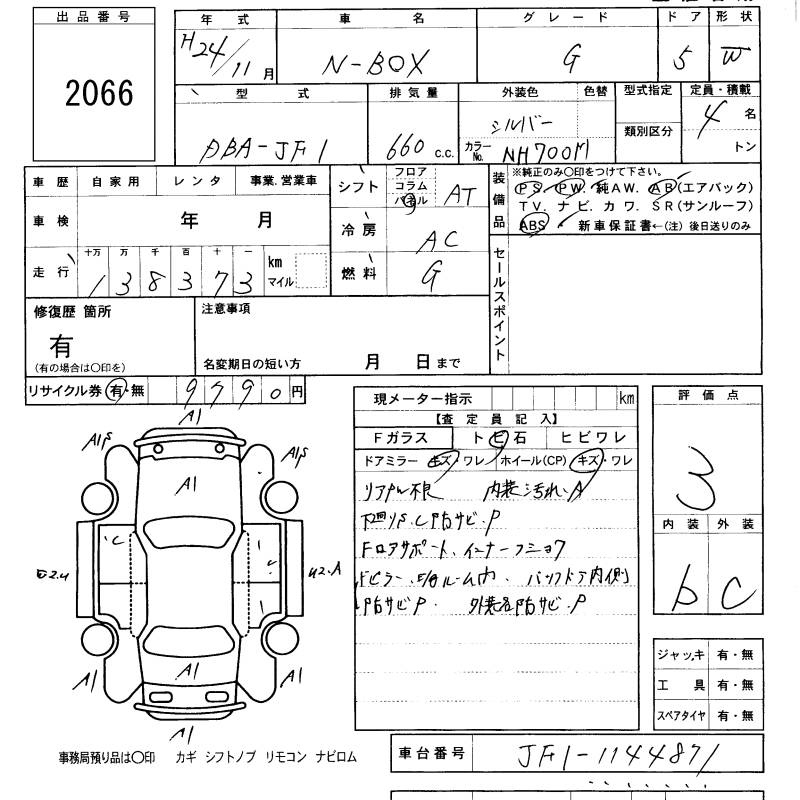 出品番号 年式 車名 グレード ドア 形状
2066 H24/11月 N-BOX G 5 W
型式 排気量 外装色 色替 型式指定 定員・積載
DBA-JF1 660 c.c. シルバー 類別区分 4名
カラーNo. NH700M トン
車歴 自家用 レンタ 事業、営業車
車検 年 月
走行 十万 万 千 百 十 一 km マイル
138373
シフト フロア コラム パネル AT
冷房 AC
燃料 G
装備品 ※純正のみ〇印をつけて下さい。
PS. PW. 純AW. AB(エアバック)
TV. ナビ. カワ. SR(サンルーフ)
ABS. 新車保証書←(注)後日送りのみ
セールスポイント
修復歴 箇所 注意事項
有
(有の場合は〇印を) 名変期日の短い方 月 日まで
リサイクル券 有・無 9790円
現メーター指示 km
【査定員記入】
Fガラス トビ石 ヒビワレ
ドアミラー キズ・ワレ ホイール(CP) キズ・ワレ
内装汚れ・A
下廻りS.C内部サビ.P
バックドア内側
外装各部サビ.P
評価点
3
内装 外装
b C
ジャッキ 有・無
工具 有・無
スペアタイヤ 有・無
A1
A1S A1S
A1
U2.A
A1 A1 A1
A1
事務局預り品は〇印 カギ シフトノブ リモコン ナビロム
車台番号 JF1-1144871